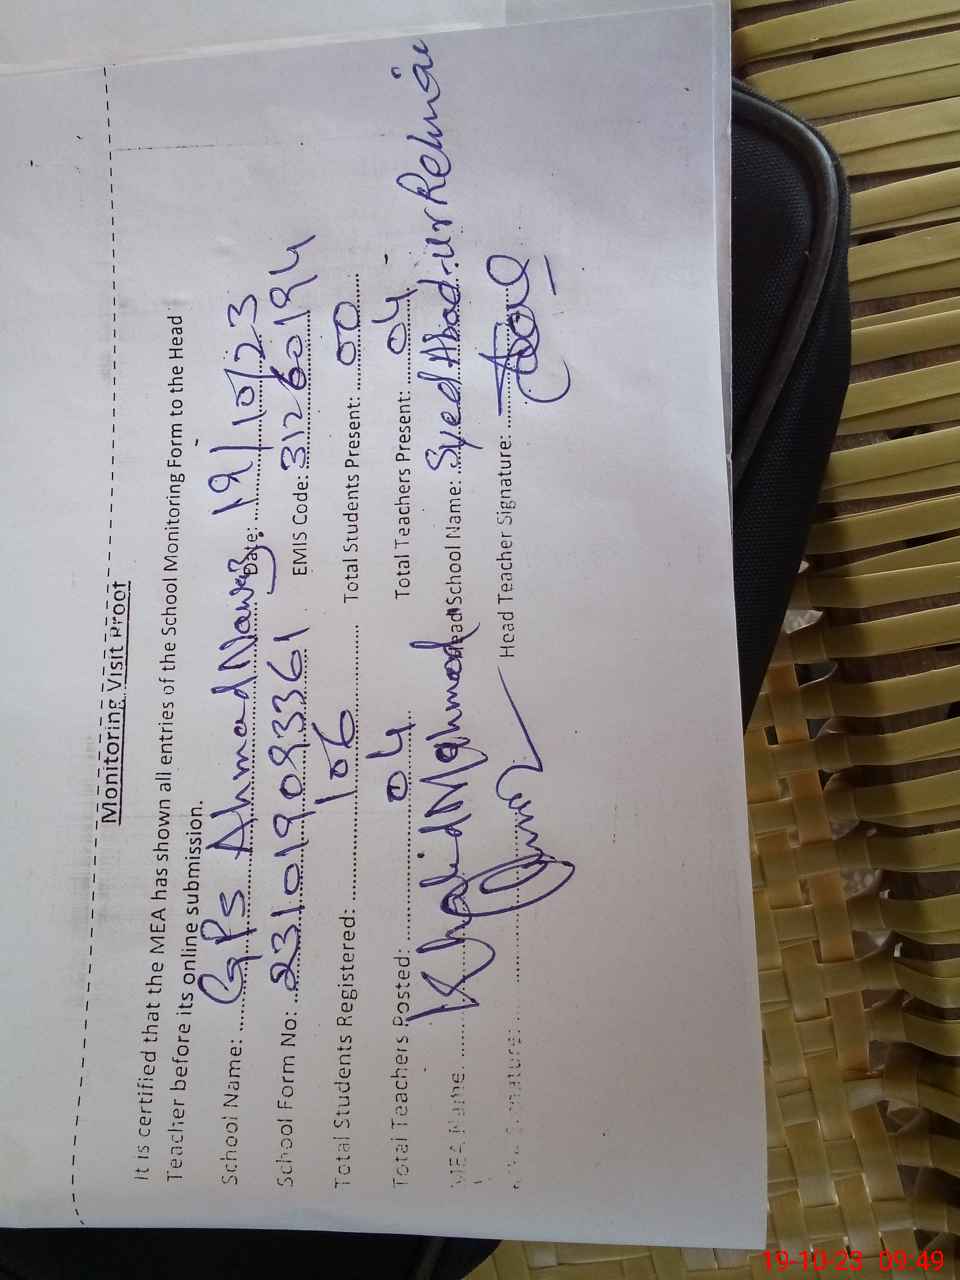 Monitoring Visit Proof
It is certified that the MEA has shown all entries of the School Monitoring Form to the Head
Teacher before its online submission.
School Name: GPS Ahmad Nawaz Date: 19/10/23
School Form No: 231019093361 EMIS Code: 31260194
Total Students Registered: 106 Total Students Present: 00
Total Teachers Posted: 04 Total Teachers Present: 04
MEA Name Khalid Mahmood Head School Name: Syed Abad-ur Rehman
Signature: Head Teacher Signature:
19-10-23 09:49